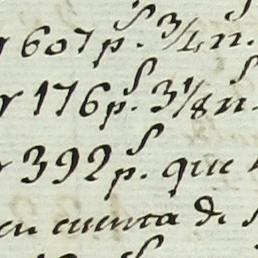 y 607 p.s 3/4 n.s
y 176 p.s 3 1/8 n.s
y 392 p.s que
en cuenta de